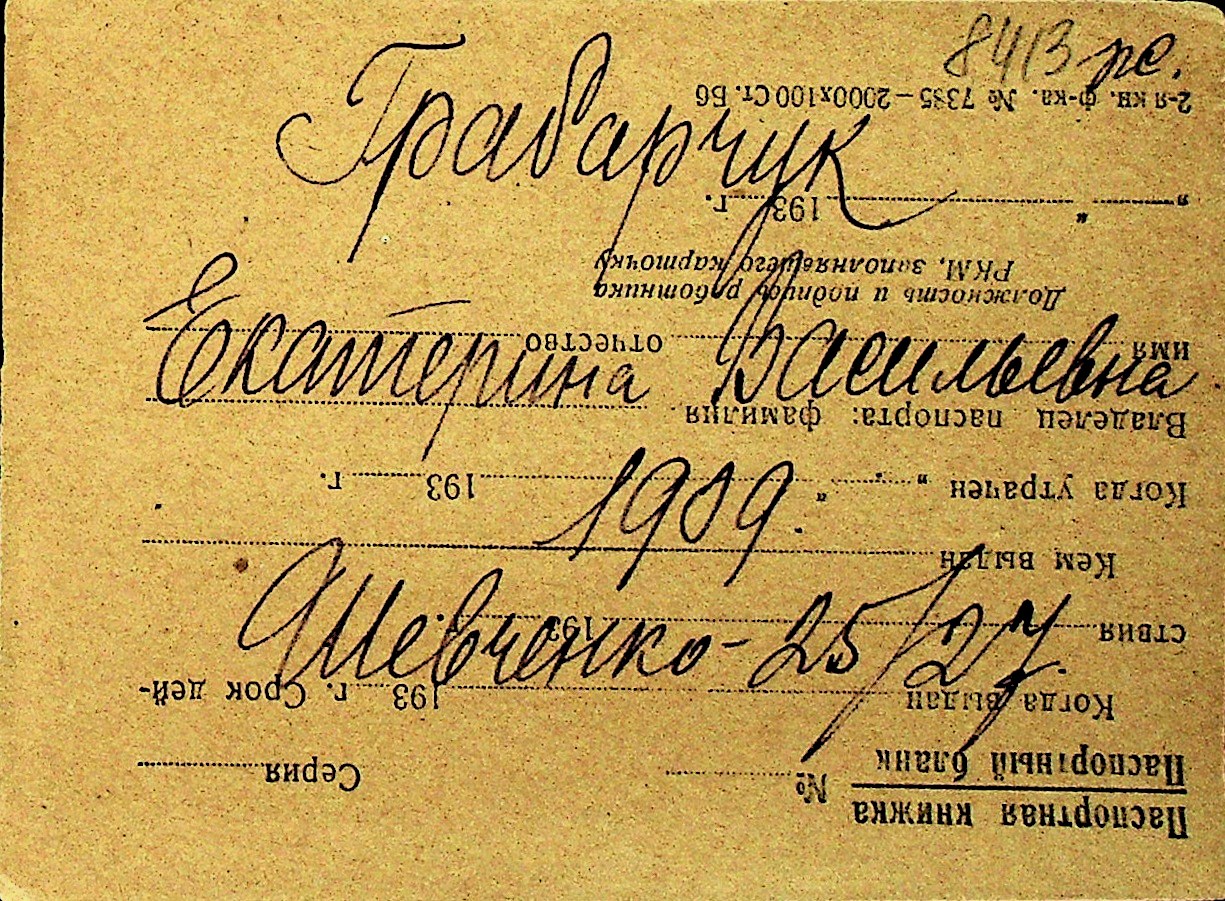 8413 рс.
Грабарчук
Екатерина Васильевна
1909.
Шевченко - 25/27.
Паспортная книжка
Паспортный бланк
№ Серия
Когда выдан 193 г. Срок дей-
ствия 193 г.
Кем выдан
Когда утрачен " " 193 г.
Владелец паспорта: фамилия
имя отчество
Должность и подпись работника
РКМ, заполнявшего карточку
" " 193 г.
2-я кн. ф-ка. № 7335 — 2000х100 Ст. Б6